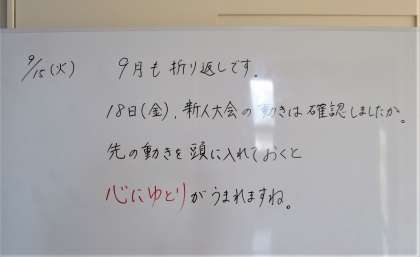 9/15(火) 9月も折り返しです。
18日(金)、新人大会の動きは確認しましたか。
先の動きを頭に入れておくと
心にゆとりがうまれますね。